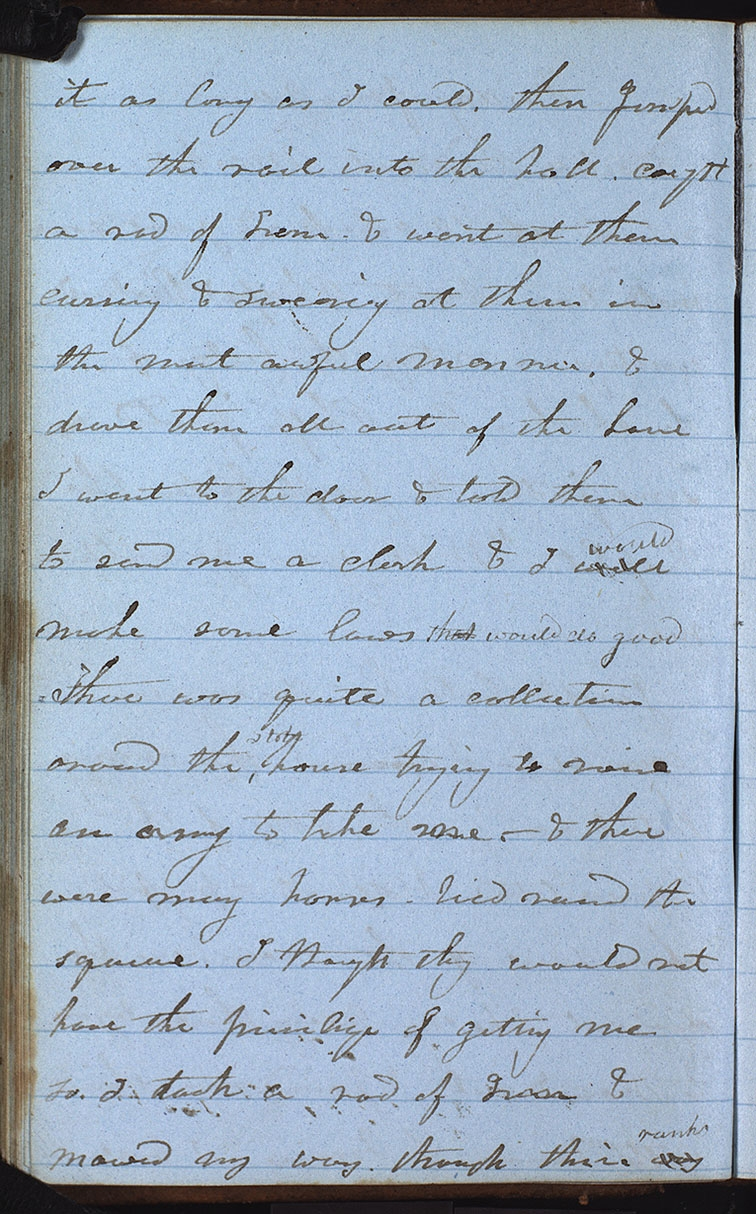 it as long as I could. then Jumped
over the rail into the hall. caught
a rod of Iron. & went at them
cursing & swearing at them in
the most awful manner. &
drove them all out of the house
I went to the door & told them
to send me a clerk & I would
make some laws that would do good
There was quite a collection
around the state house trying to raise
an army to take me - & there
were many horses - tied round the
square. I thought they would not
have the privilige of getting me
so. I took a rod of Iron &
mowed my way through their ranks